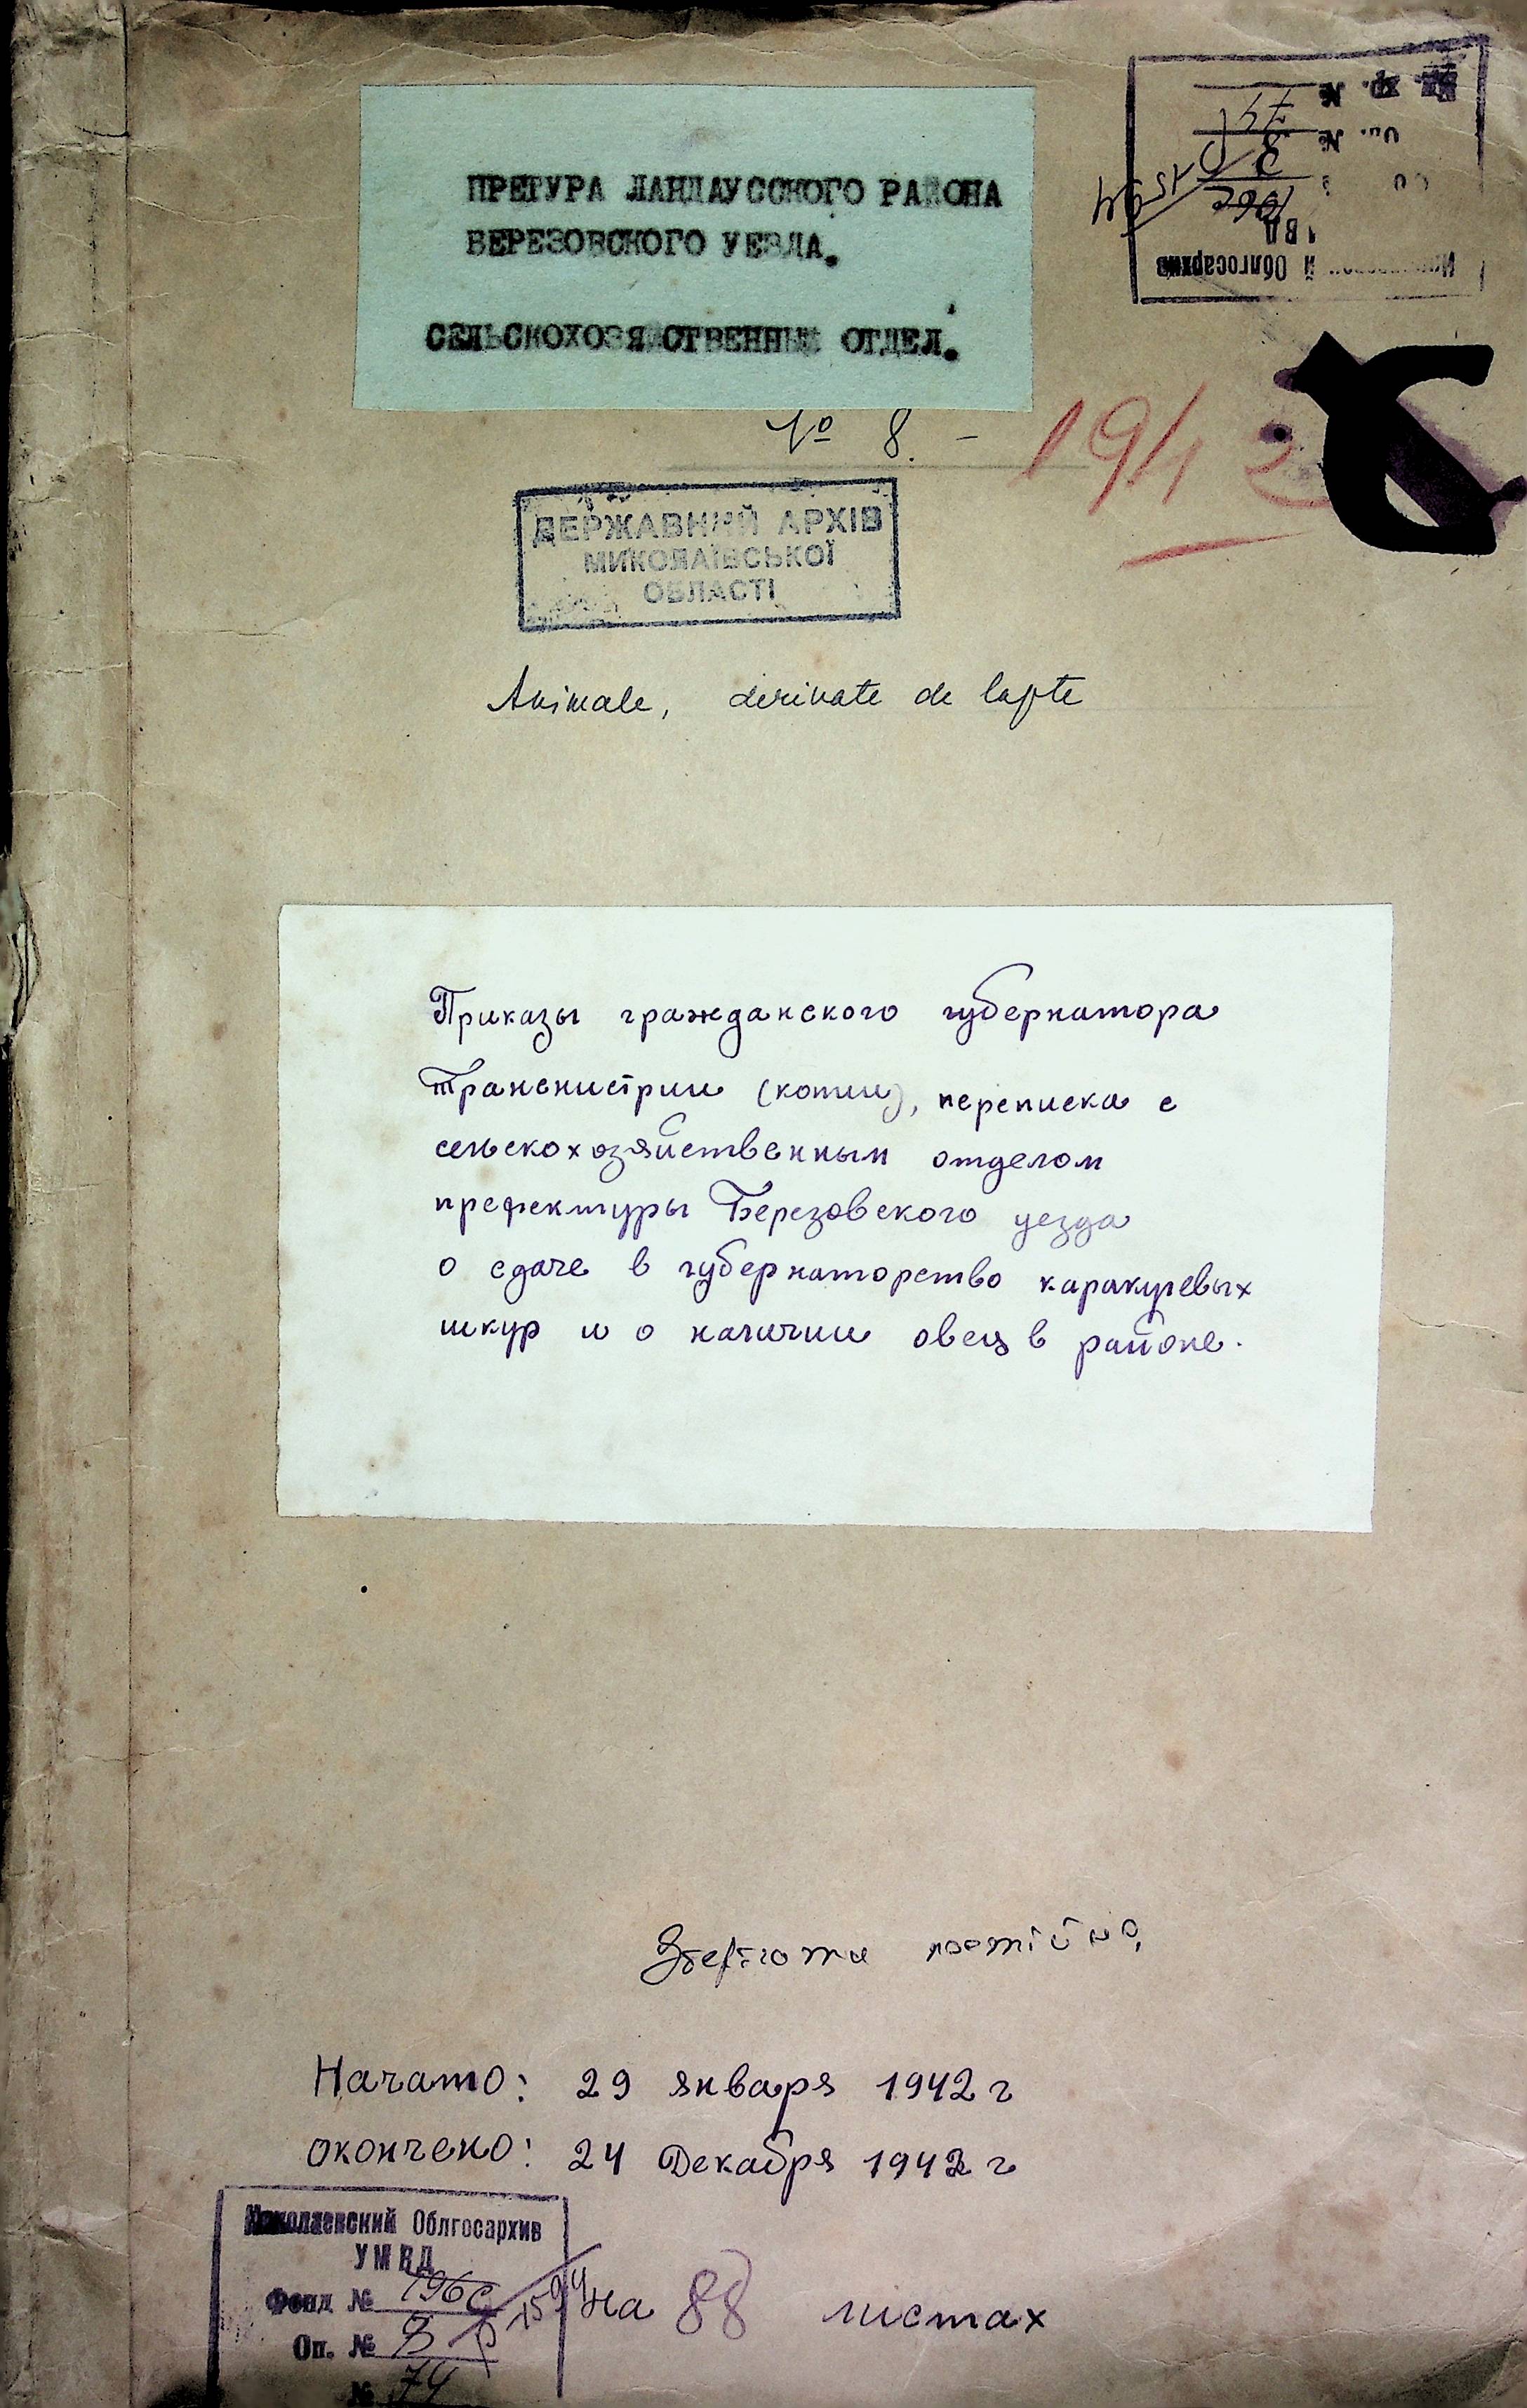 ПРЕТУРА ЛАНДАУССКОГО РАЙОНА
БЕРЕЗОВСКОГО УЕЗДА.
СЕЛЬСКОХОЗЯЙСТВЕННЫЙ ОТДЕЛ.
№ 8. –
1942
ДЕРЖАВНИЙ АРХІВ
МИКОЛАЇВСЬКОЇ
ОБЛАСТІ
Animale, derivate de lapte
Приказы гражданского губернатора
Транснистрии (копии), переписка с
сельскохозяйственным отделом
префектуры Березовского уезда
о сдаче в губернаторство каракулевых
шкур и о наличии овец в районе.
Зберігати постійно
Начато: 29 января 1942 г
окончено: 24 Декабря 1942 г
Николаевский Облгосархив
УМВД
Фонд № 196с 1594
Оп. № 3
№ 74
на 88 листах